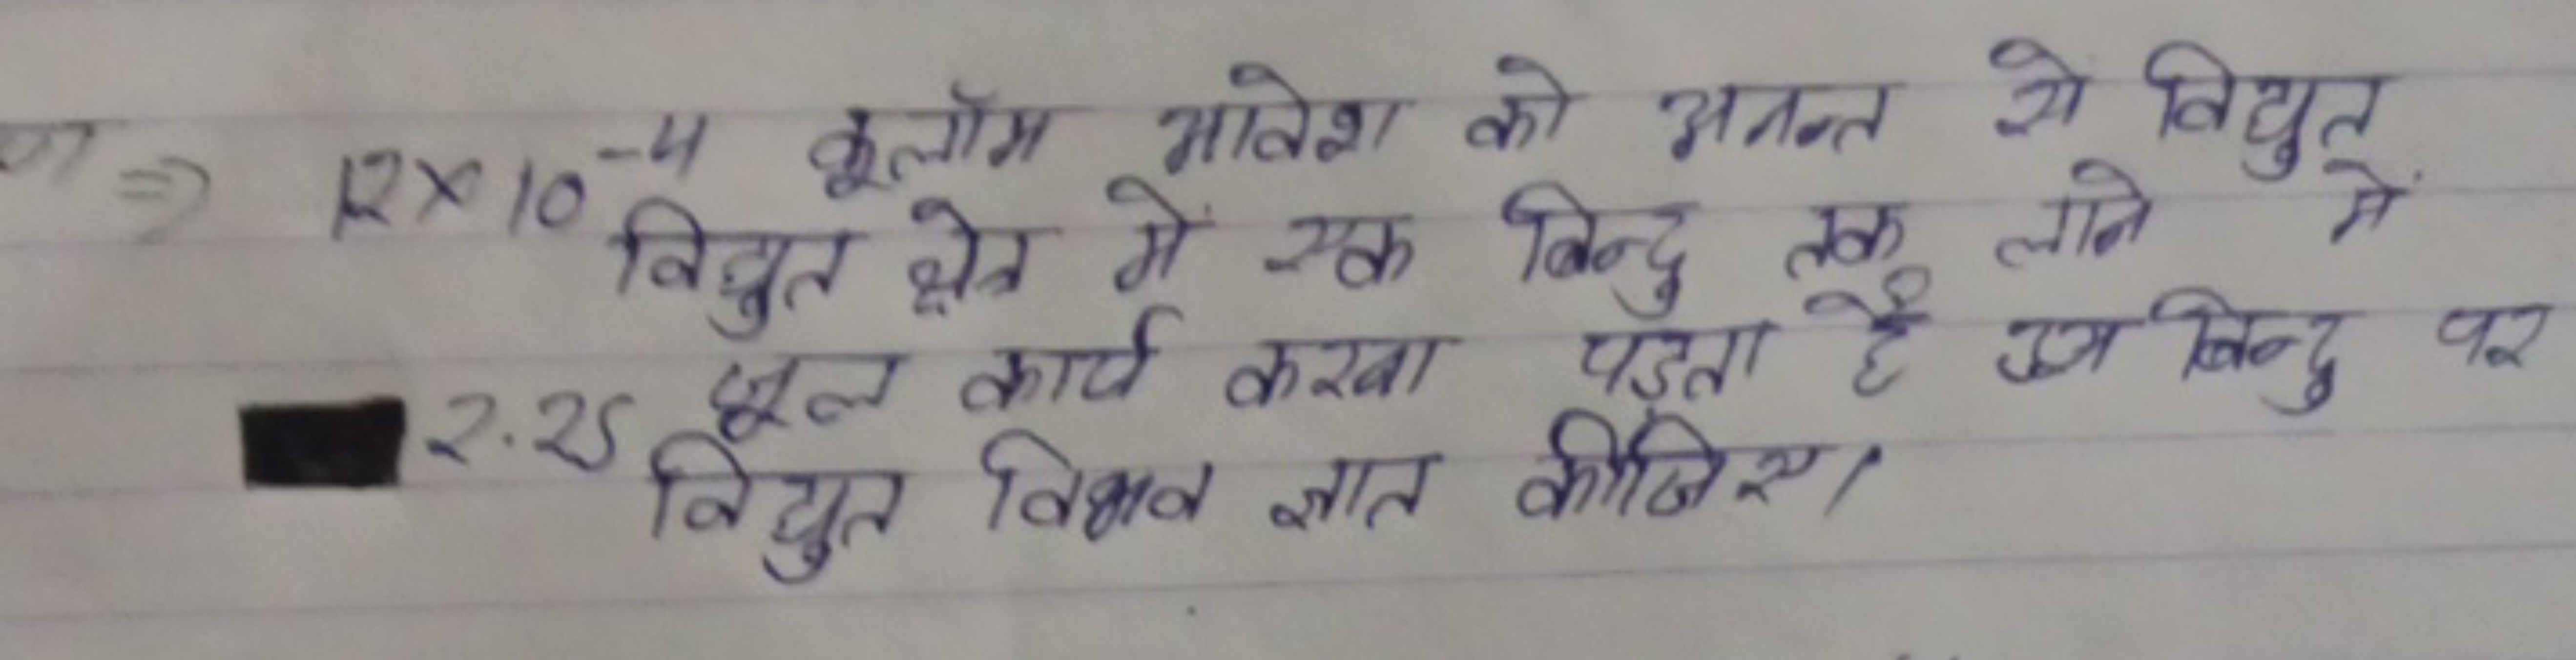 ⇒ 12×10⁻⁴ कूलॉम आवेश को अनन्त से विद्युत
विद्युत क्षेत्र में एक बिन्दु तक लाने में
2.25 जूल कार्य करवा पड़ता है उस बिन्दु पर
विद्युत विभव ज्ञात कीजिए।